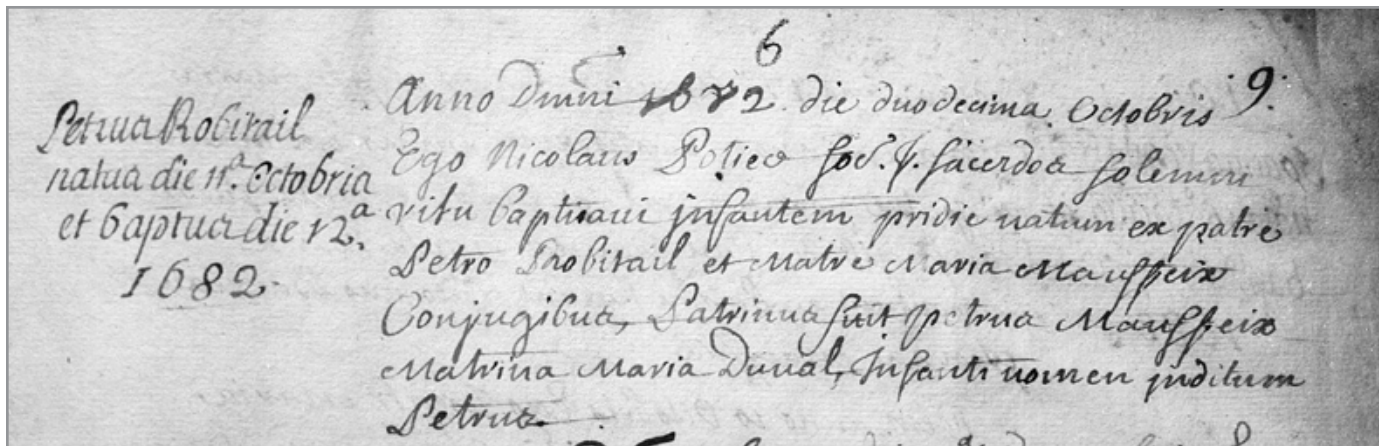 6
9.
Petrus Robitail
natus die 11.a Octobris
et baptus die 12.a
1682.
Anno Dmni 1682. die duodecima Octobris
Ego Nicolaus Potier Soc. J. sacerdos solemni
ritu baptisavi infantem pridie natum ex patre
Petro Robitail et Matre Maria Mausseix
Conjugibus, Patrinus fuit petrus Mausseix
Matrina Maria Duval, Infanti nomen inditum
Petrus.